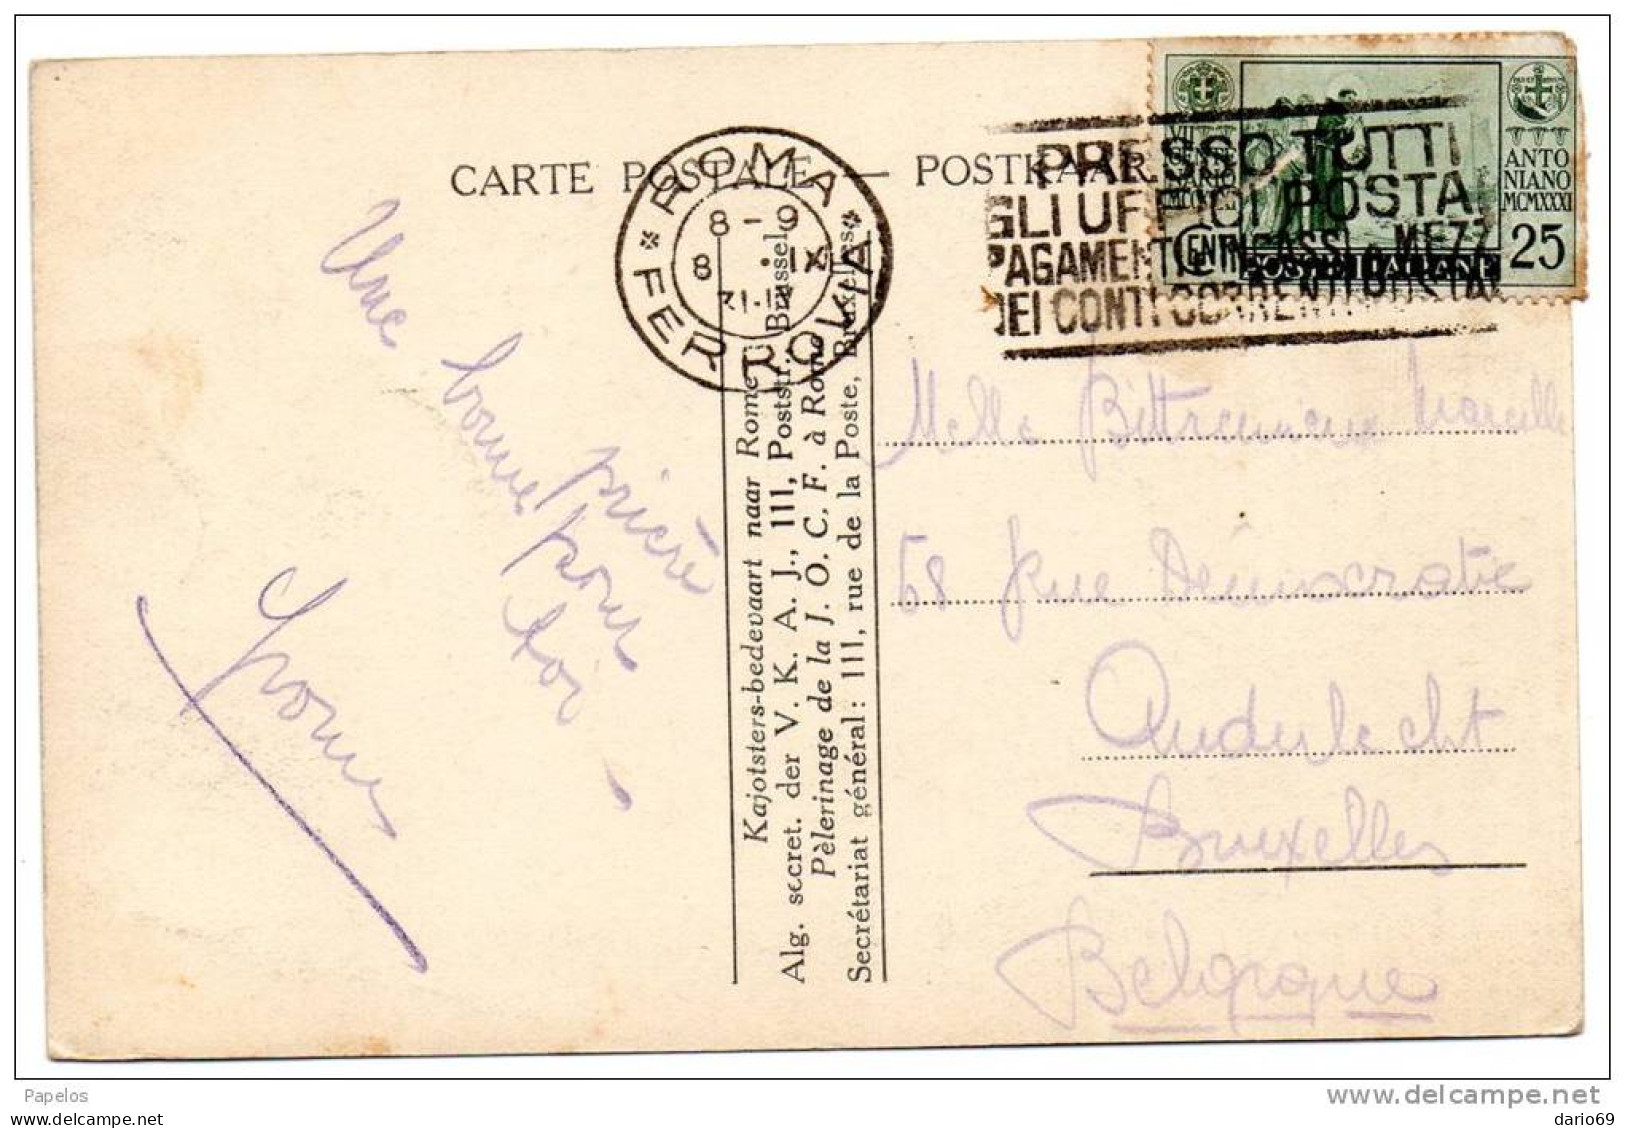 CARTE POSTALE — POSTKAAR
ROMA
* FERROVIA *
8 - 9
8 . IX
31 · IX
PRESSO TUTTI
GLI UFFICI POSTA
PAGAMENTI INCASSI MEZZ
DEI CONTI CORRENTI POSTA
VII
ANTO
NIANO
MCMXXXI
CENT
25
POSTE ITALIANE
Une bonne
prière
pour
toi
Yvonne
Kajotsters-bedevaart naar Rome
Alg. secret. der V. K. A. J., 111, Poststr., Brussel
Pèlerinage de la J. O. C. F. à Rome
Secrétariat général: 111, rue de la Poste, Bruxelles
Melle Marcelle
68 Rue Démocratie
Anderlecht
Bruxelles
Belgique
Papelos
www.delcampe.net
dario69